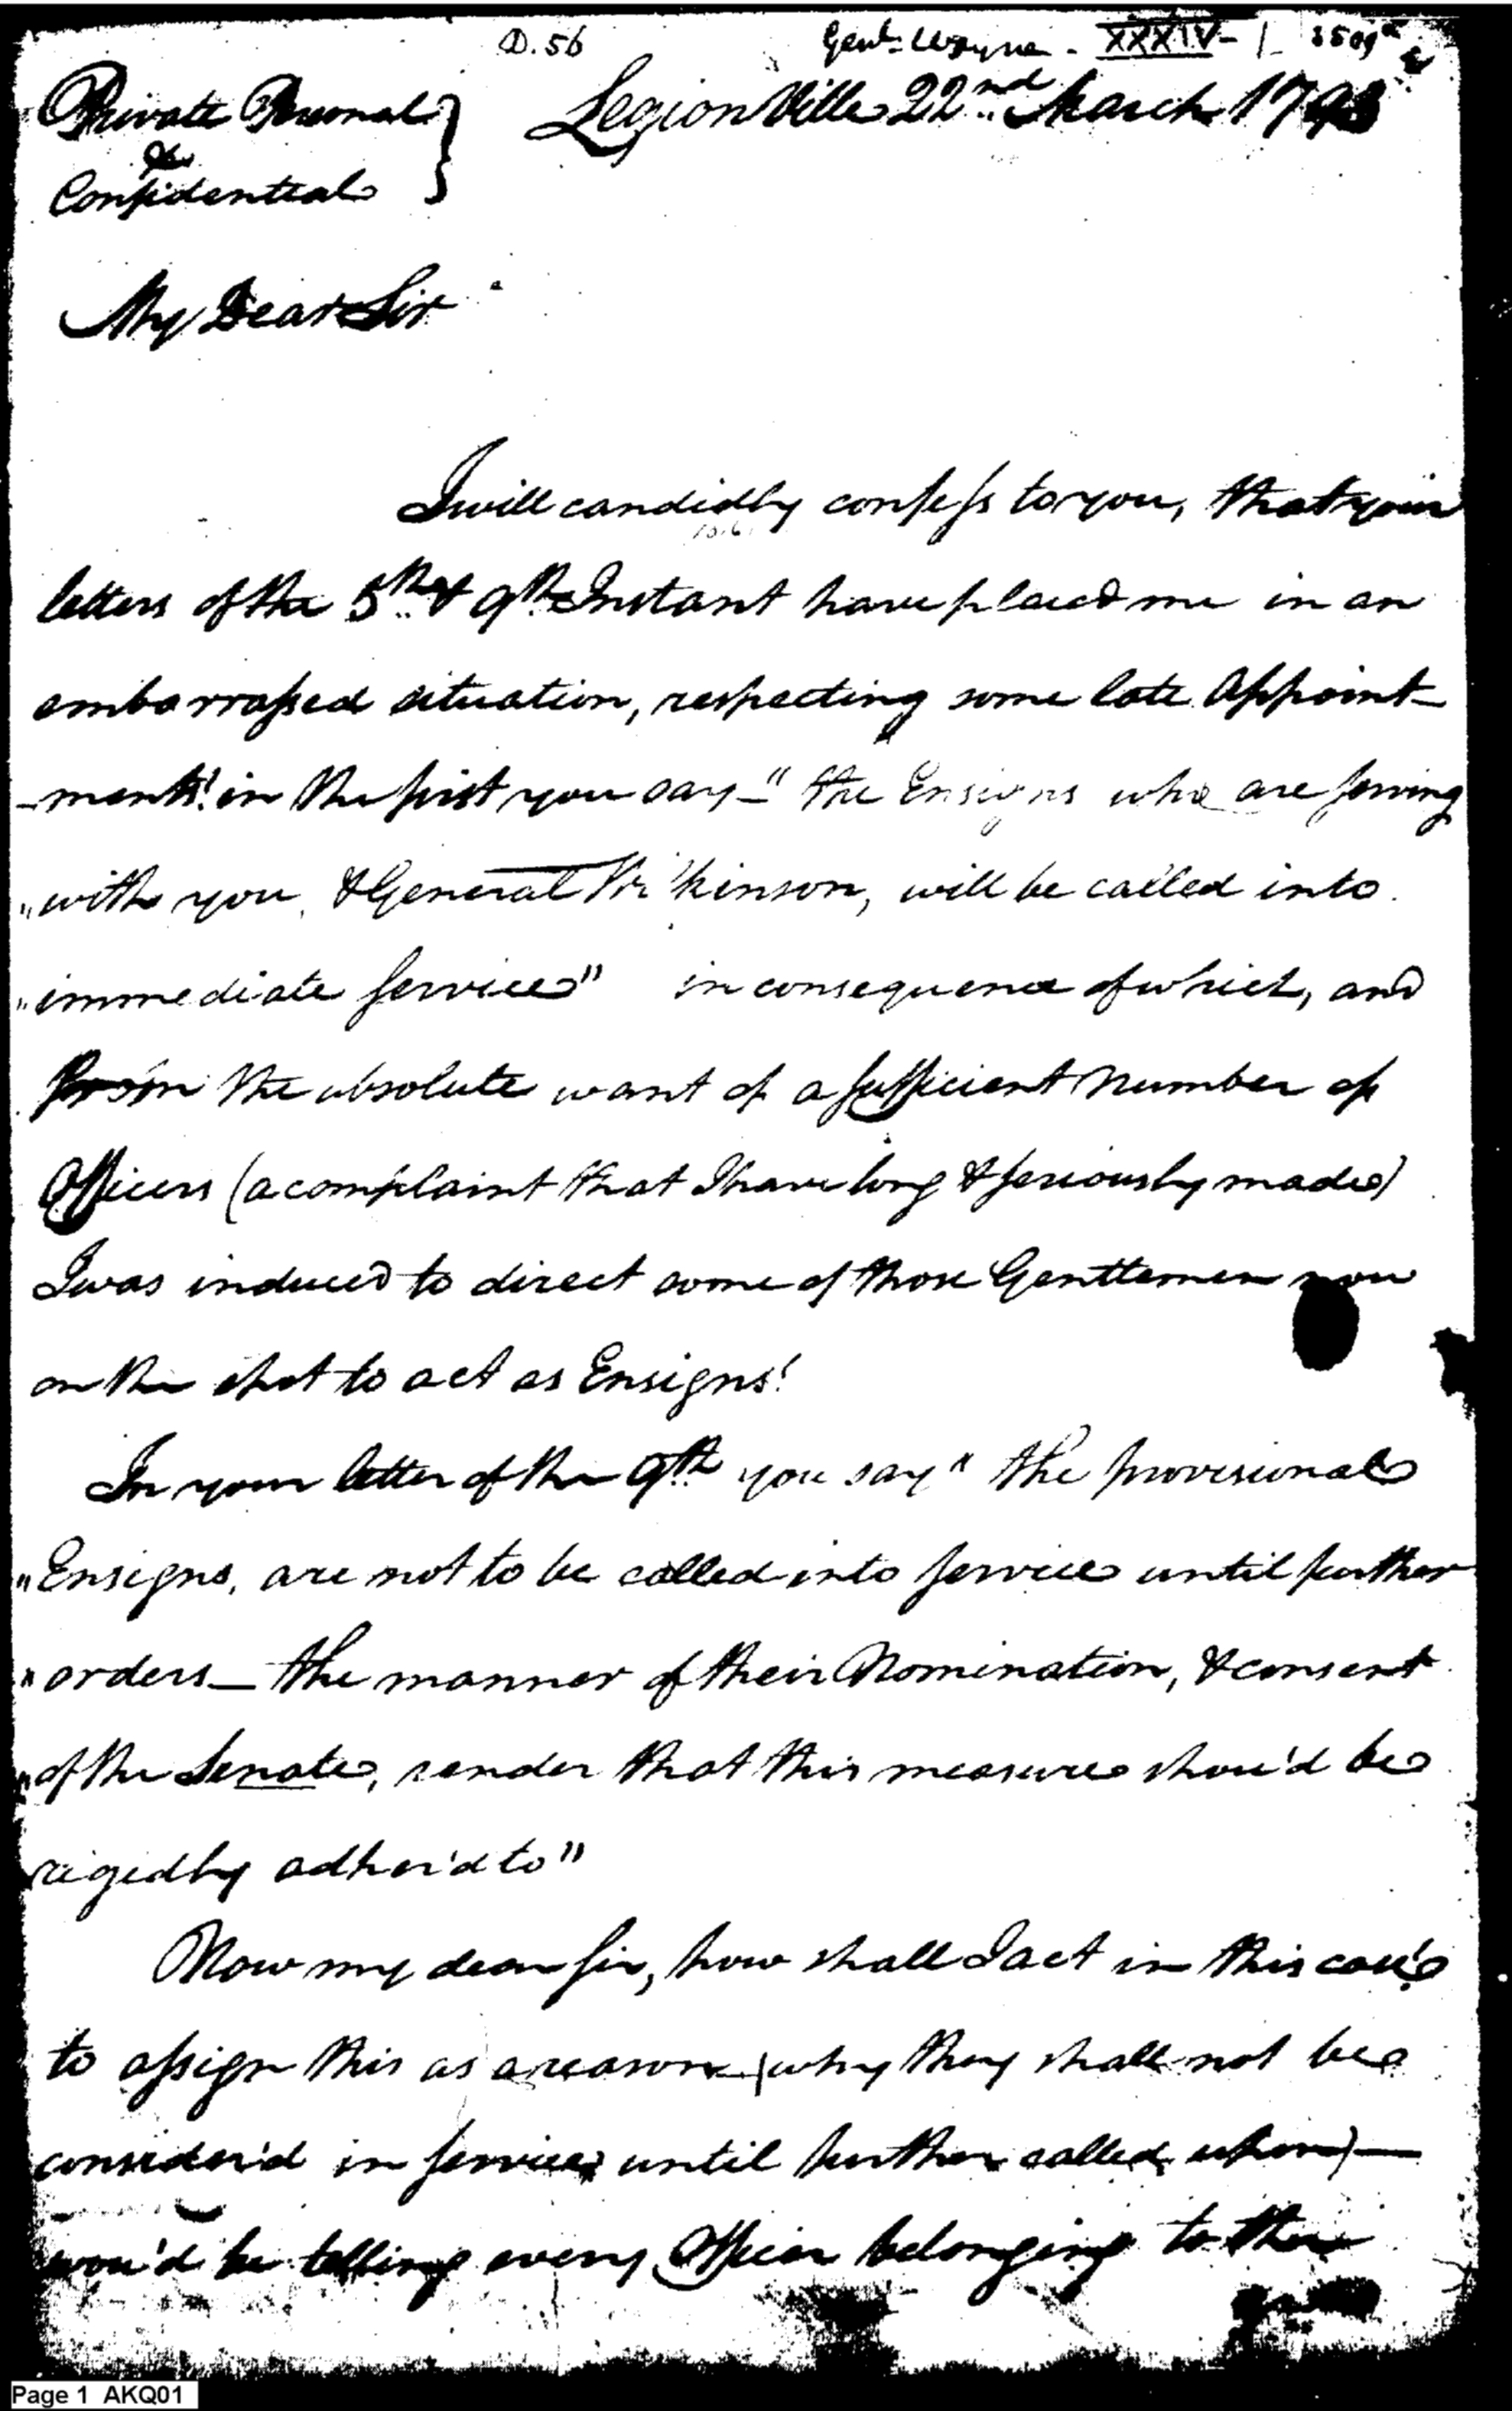 D. 56
Genl. Wayne - XXXIV - 1
Private Personal
&
Confidential
Legion Ville 22nd March 1793
My Dear Sir
I will candidly confess to you, that your
letters of the 5th & 9th Instant have placed me in an
embarrassed situation, respecting some late Appoint-
-ments! in the first you say - " the Ensigns who are serving
" with you, & General Wilkinson, will be called into
" immediate service" in consequence of which, and
from the absolute want of a sufficient number of
Officers (a complaint that I have long & seriously made)
I was induced to direct some of those Gentlemen now
on the spot to act as Ensigns!
In your letter of the 9th you say " the provisional
" Ensigns, are not to be called into service until further
" orders - the manner of their Nomination, & consent
" of the Senate, render that this measure shou'd be
rigedly adher'd to"
Now my dear sir, how shall I act in this case?
to assign this as a reason (why they shall not be
consider'd in service until further called upon) —
wou'd be telling every Officer belonging to the
Page 1 AKQ01